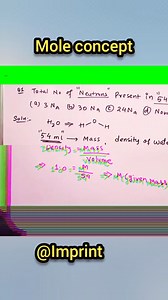 Mole concept
Q1 Total No of "Neutrons" Present in "54
(a) 3 NA (b) 30 NA (c) 24NA (d) Non
Soln:-
H2O => H-O-H
"54 ml" → Mass, density of wate
Density = Mass
Volume
=> 1.0 = M
54
=> M (given mass
@Imprint